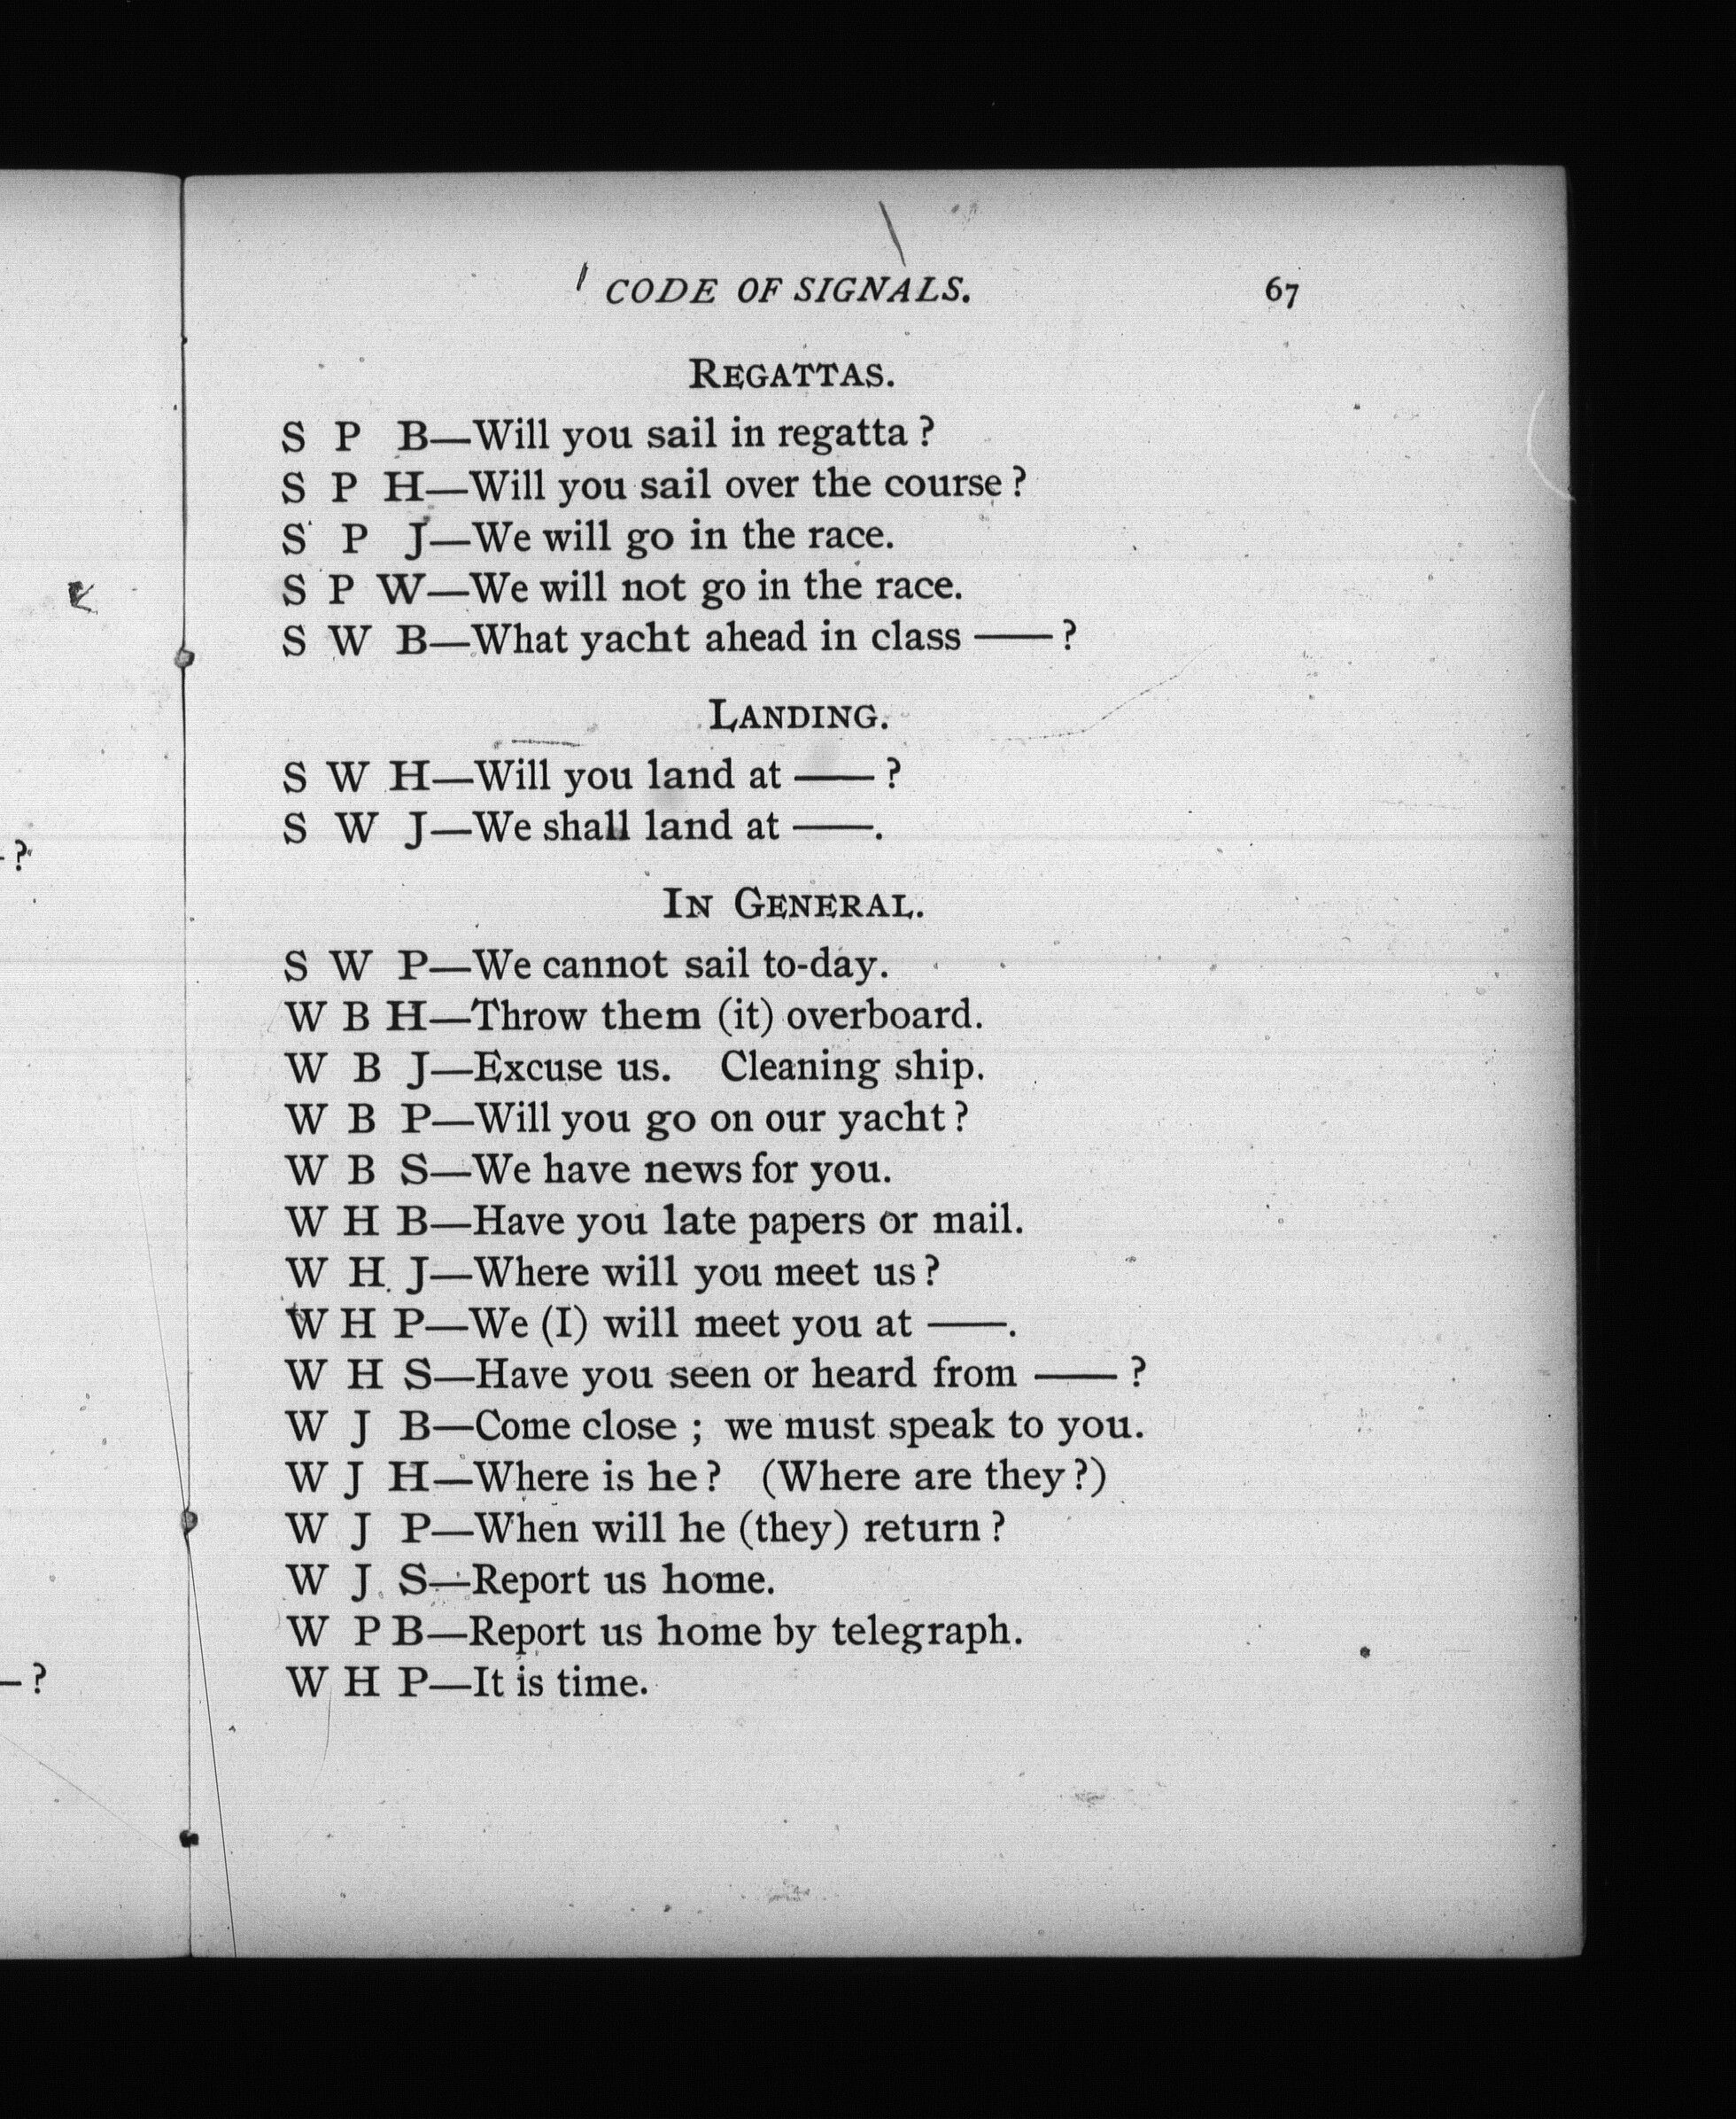 CODE OF SIGNALS. 67
REGATTAS.
S P B—Will you sail in regatta?
S P H—Will you sail over the course?
S P J—We will go in the race.
S P W—We will not go in the race.
S W B—What yacht ahead in class ——?
LANDING.
S W H—Will you land at ——?
S W J—We shall land at ——.
IN GENERAL.
S W P—We cannot sail to-day.
W B H—Throw them (it) overboard.
W B J—Excuse us. Cleaning ship.
W B P—Will you go on our yacht?
W B S—We have news for you.
W H B—Have you late papers or mail.
W H J—Where will you meet us?
W H P—We (I) will meet you at ——.
W H S—Have you seen or heard from ——?
W J B—Come close; we must speak to you.
W J H—Where is he? (Where are they?)
W J P—When will he (they) return?
W J S—Report us home.
W P B—Report us home by telegraph.
W H P—It is time.